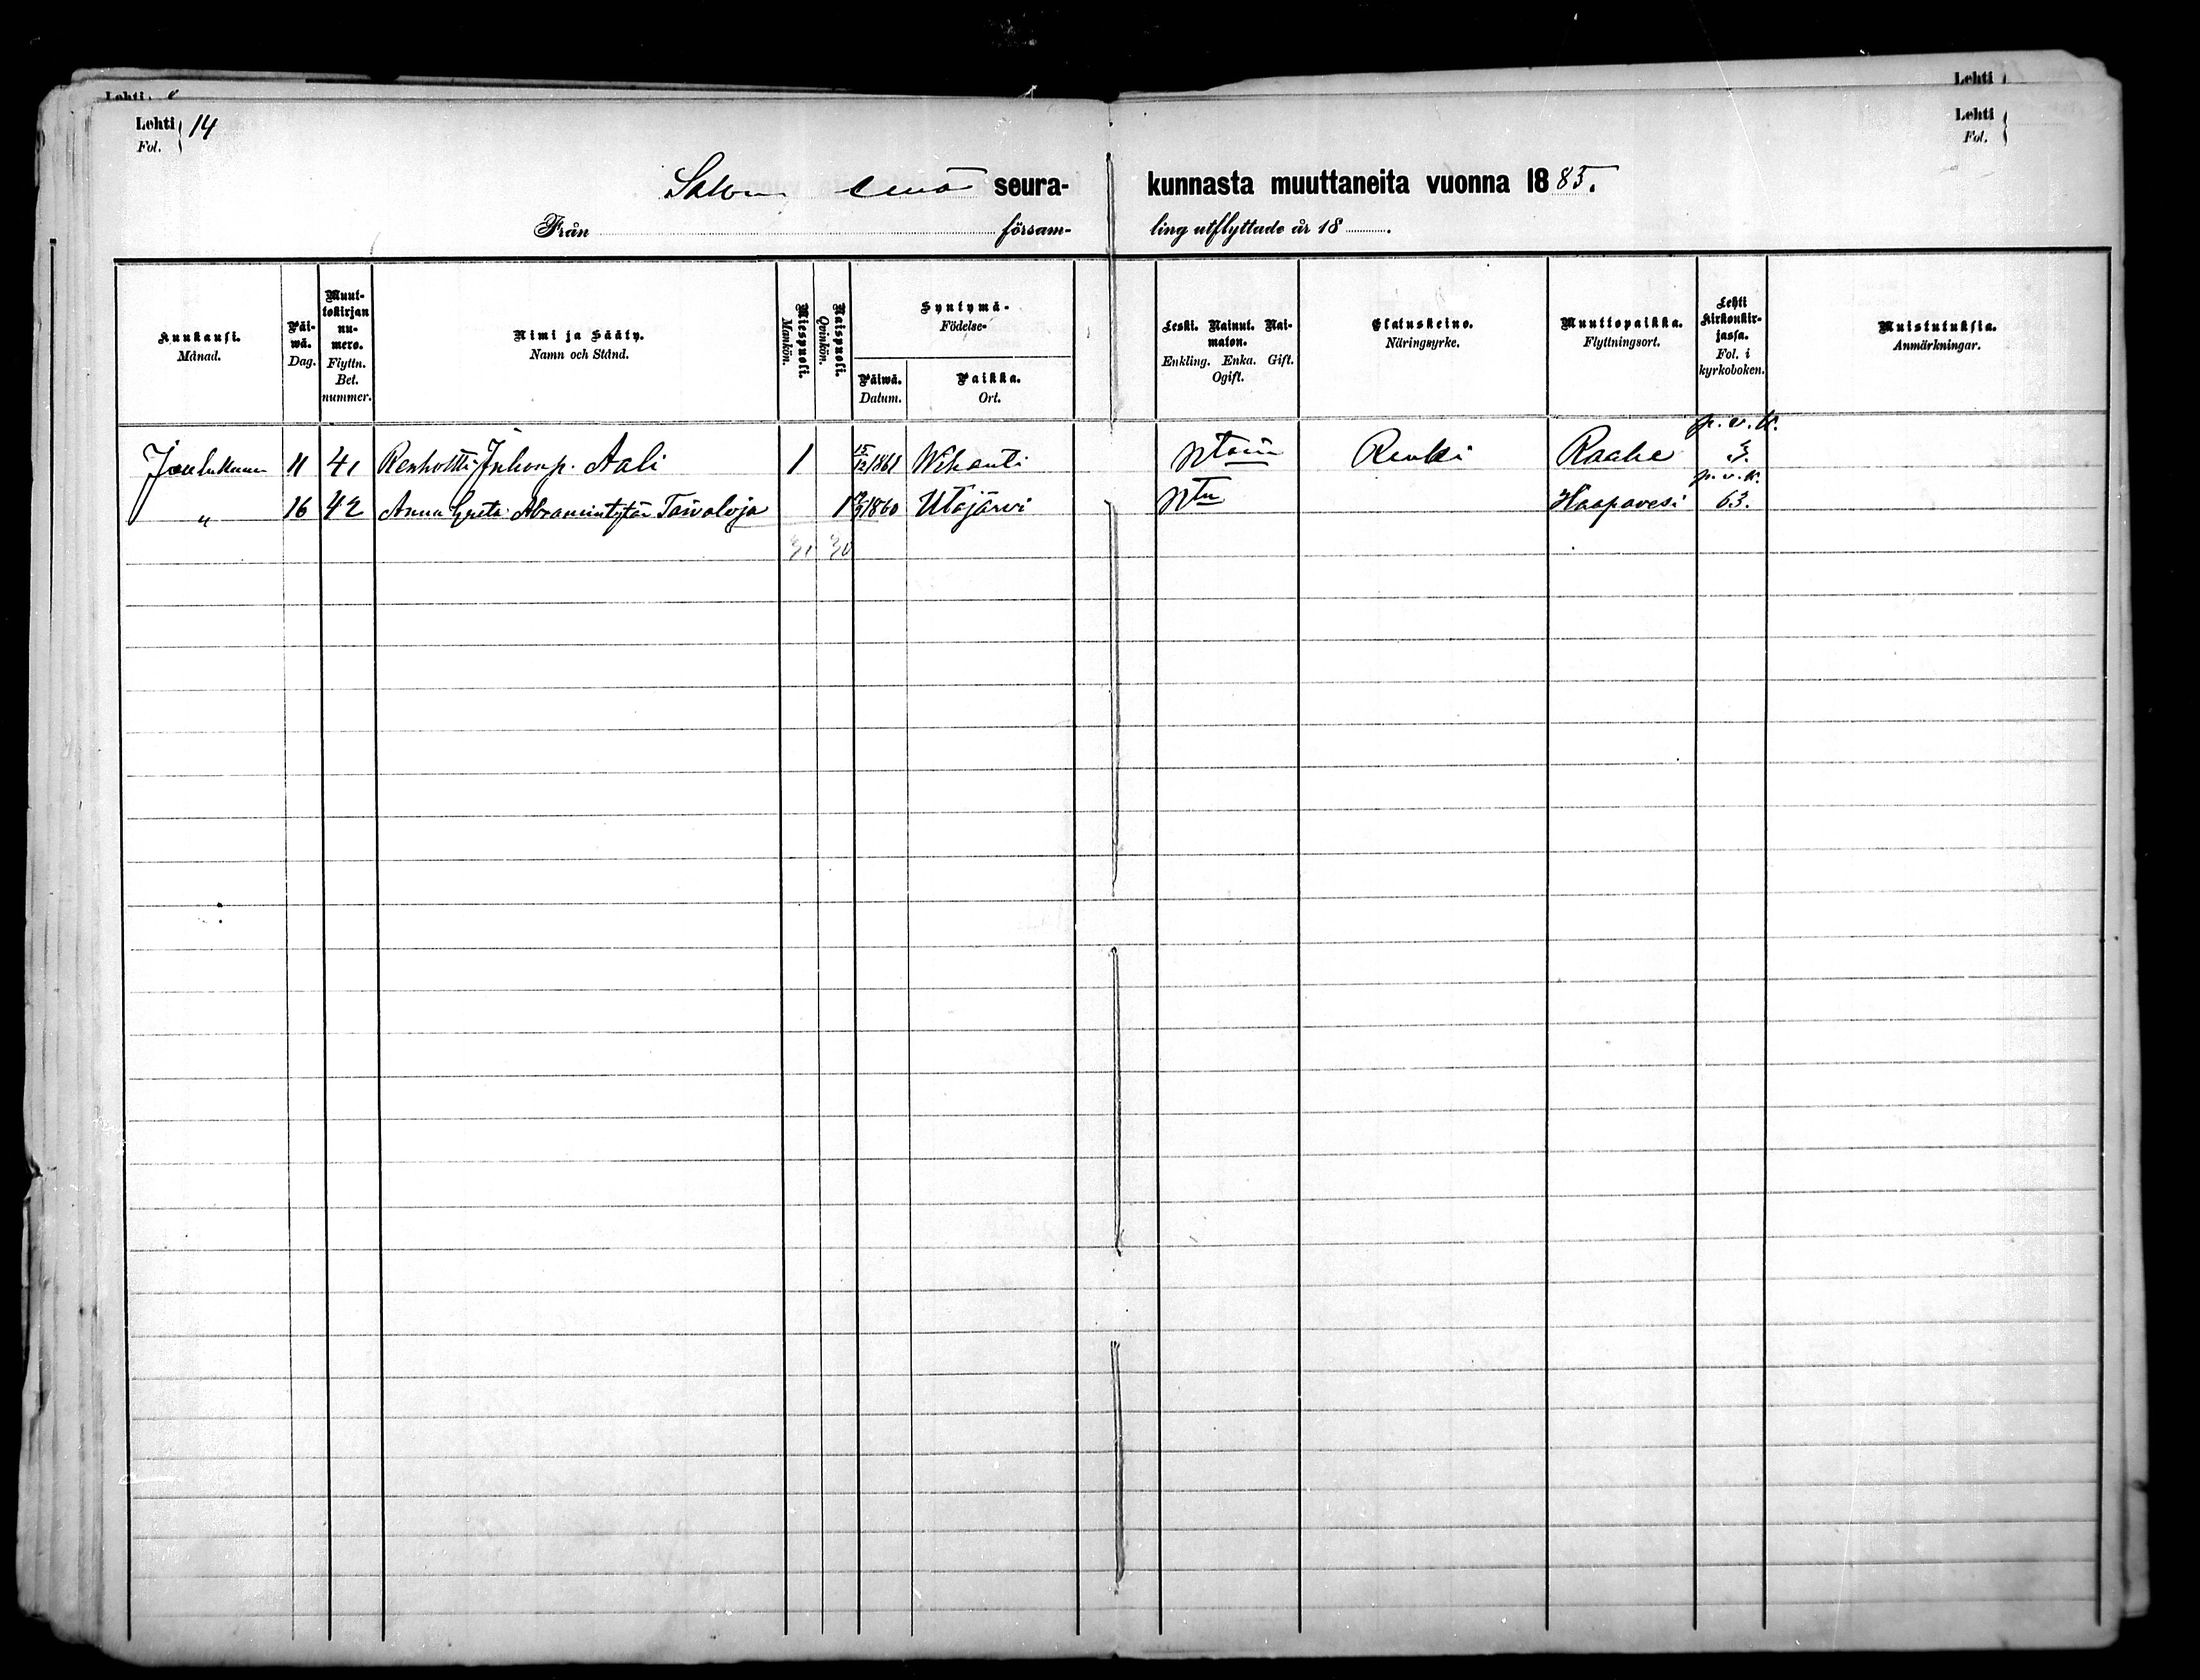 Lehti
Lehti
Lehti 14
Fol.
Lehti
Fol.
Salon emä seura-kunnasta muuttaneita vuonna 1885.
Från försam-ling utflyttade år 18
Kuukausi. Månad.
Päi-wä. Dag.
Muut-tokirjan nu-mero. Flyttn. Bet. nummer.
Nimi ja Sääty. Namn och Stånd.
Miespuoli. Mankön.
Naispuoli. Qvinkön.
Syntymä- Födelse-
Päiwä. Datum.
Paikka. Ort.
Leski. Nainut. Nai-maton. Enkling. Enka. Gift. Ogift.
Elatuskeino. Näringsyrke.
Muuttopaikka. Flyttningsort.
Lehti Kirkonkir-jassa. Fol. i kyrkoboken.
Muistutuksia. Anmärkningar.
Joulukuun 11 41 Renholtti Juhonp. Aali 1 15/12 1861 Wihanti Ntoin Renki Raahe p.v.k. 3.
" 16 42 Anna Greta Abramintytär Taivaloja 1 1860 Utajärvi Ntn Haapavesi p.v.k. 63.
31 30